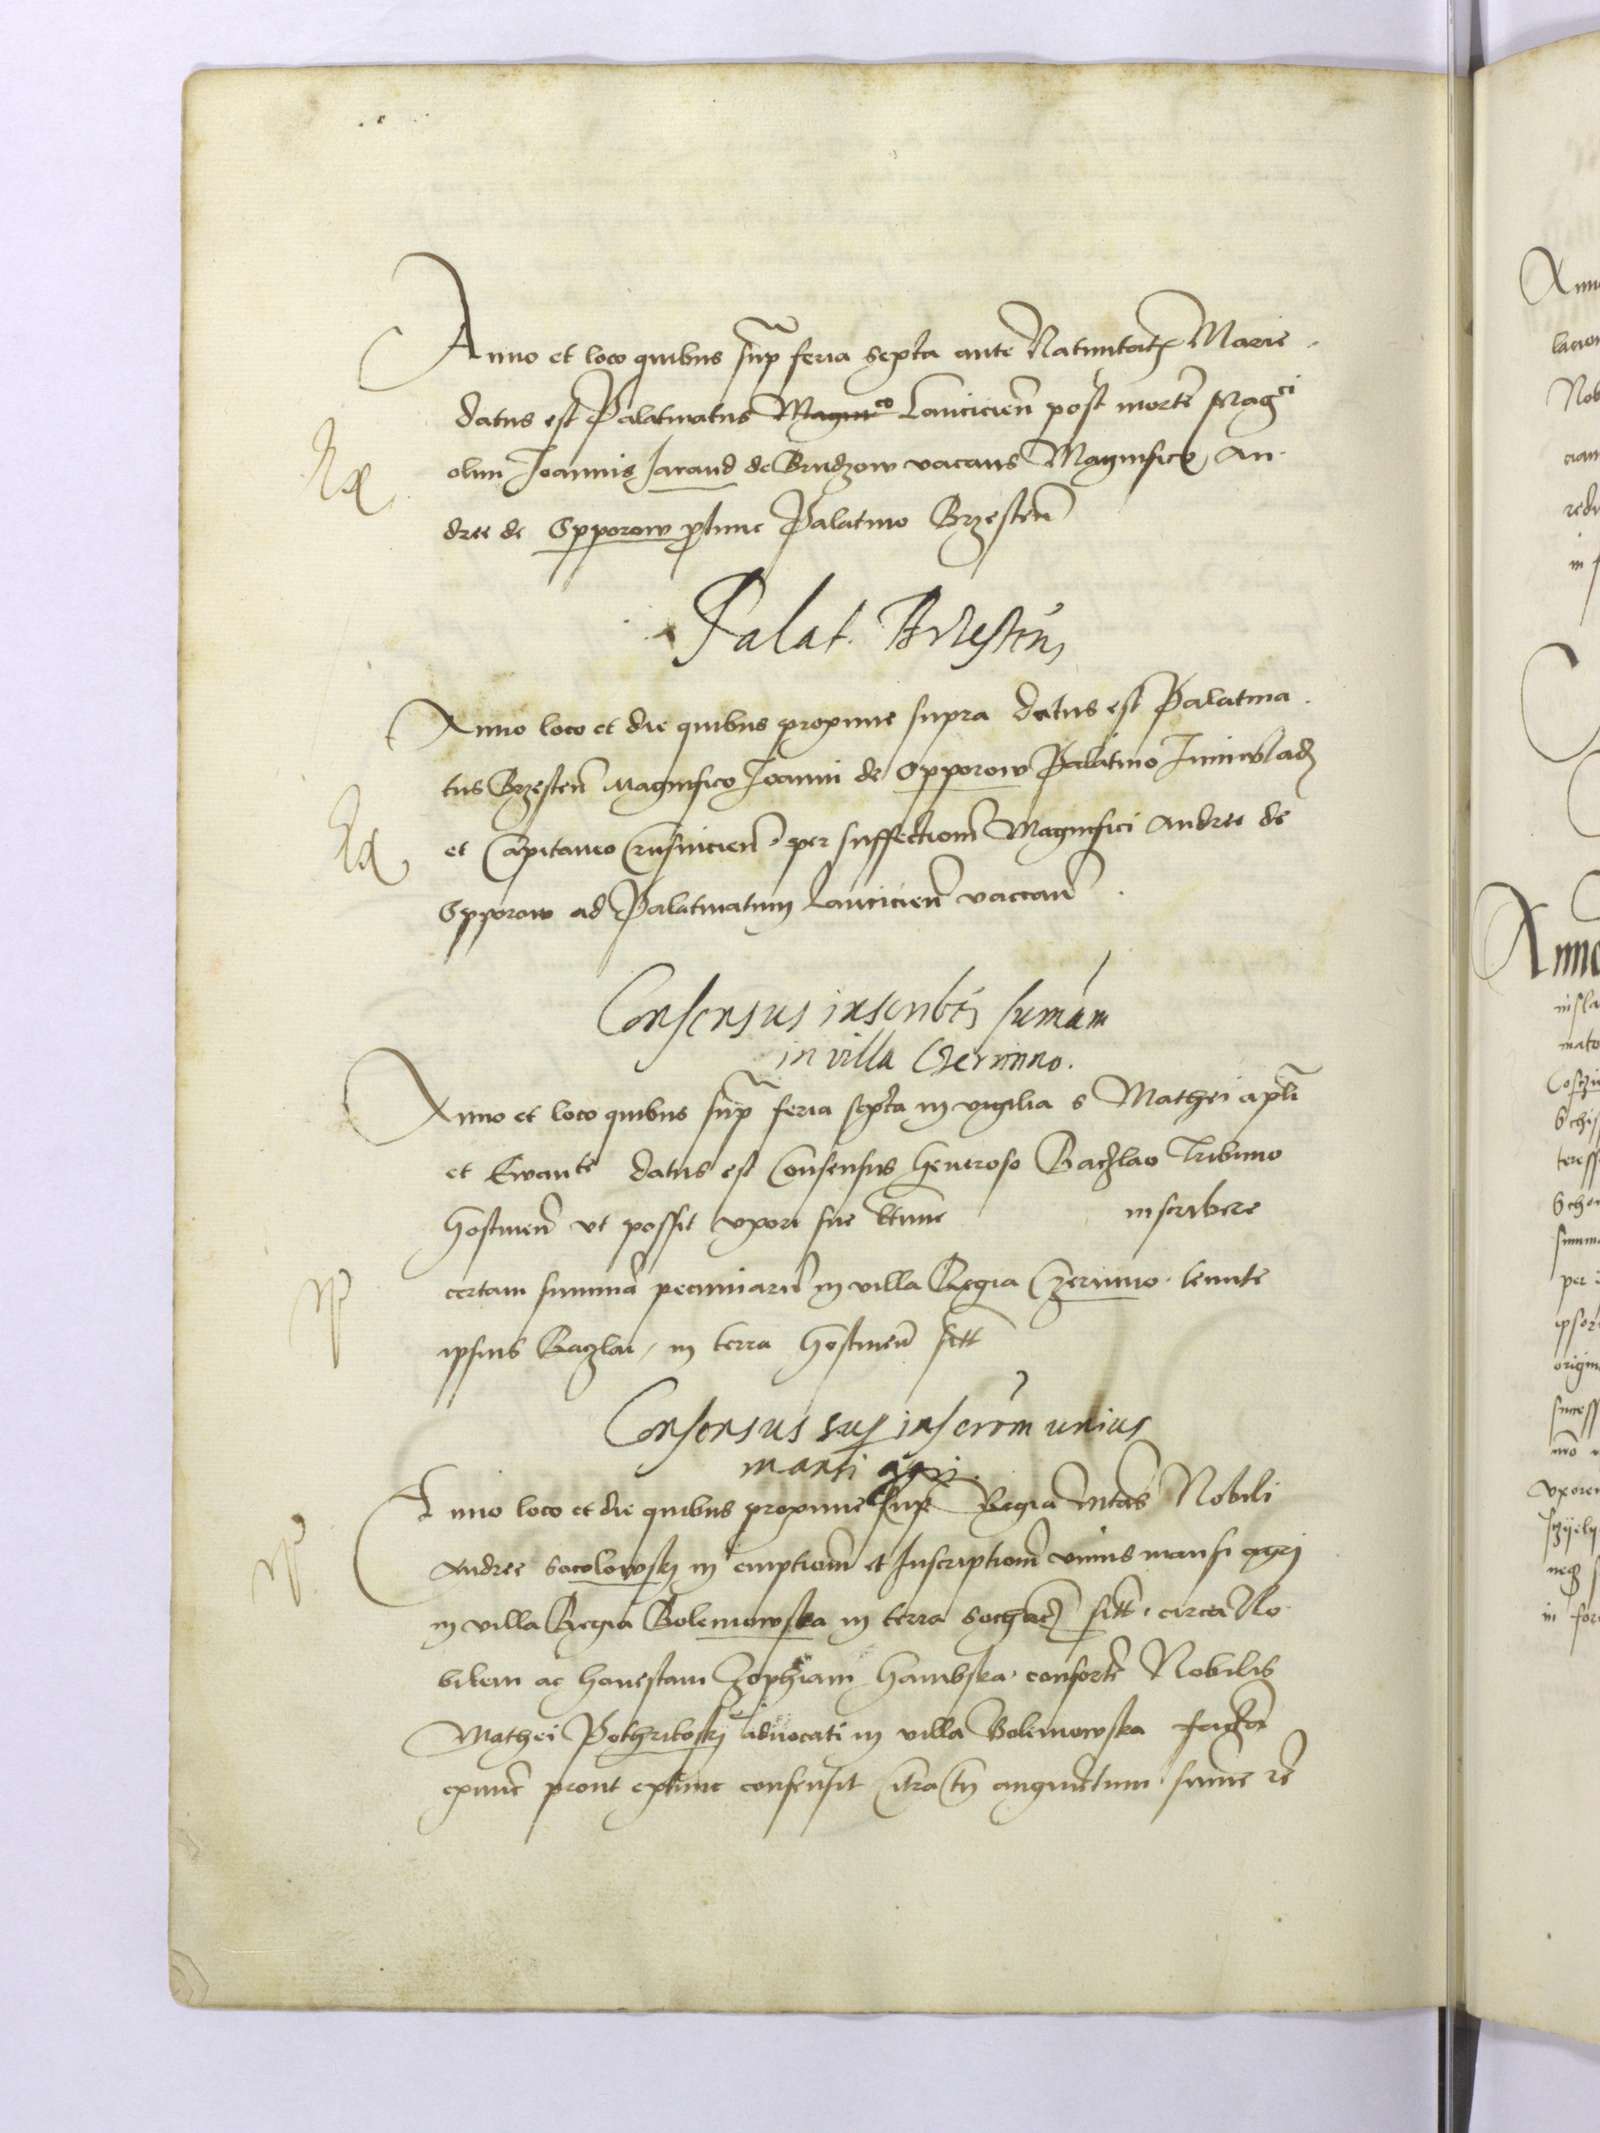 Anno et loco quibus sup feria sexta ante Natiuitatem Marie
datus est Palatinatus Magnico Lancicien post morte Magci
olim Joannis Jarand de Brudzow vacans Magnifico An
dree de Opporow ptunc Palatino Brzesten
Palat. Brzesten
Anno loco et die quibus proxime supra datus est Palatina
tus Brzesten Magnifico Joanni de Opporow Palatino Juniwlad
et Capitaneo Crusuicien per suffectionem Magnifici Andree de
Opporow ad Palatinatum Lancicien vaccan
Consensus inscribendi sumam
in villa Czernino.
Anno et loco quibus sup feria sexta in vigilia s Mathei apli
et Ewante datus est Consensus Generoso Baczlao Tribuno
Gostinen vt possit vxori sue ktime inscribere
certam summa pecuniaru in villa Regia Czernino tenute
ipsius Baczlai in terra Gostinen sitt
Consensus sup inscrom unius
mansi agri.
Anno loco et die quibus proxime sup Regia Mtas Nobili
Andree Socolowskj in emptionem et Inscriptionem vnius mansi agrj
in villa Regia Bolemowska in terra Sochacz sitt circa No
bilem ac honestam Zophiam Hambska consorte Nobilis
Mathei Pothritoskj aduocati in villa Bolimowska factam
exnunc prout extunc consensit citra tn augmentum summe re